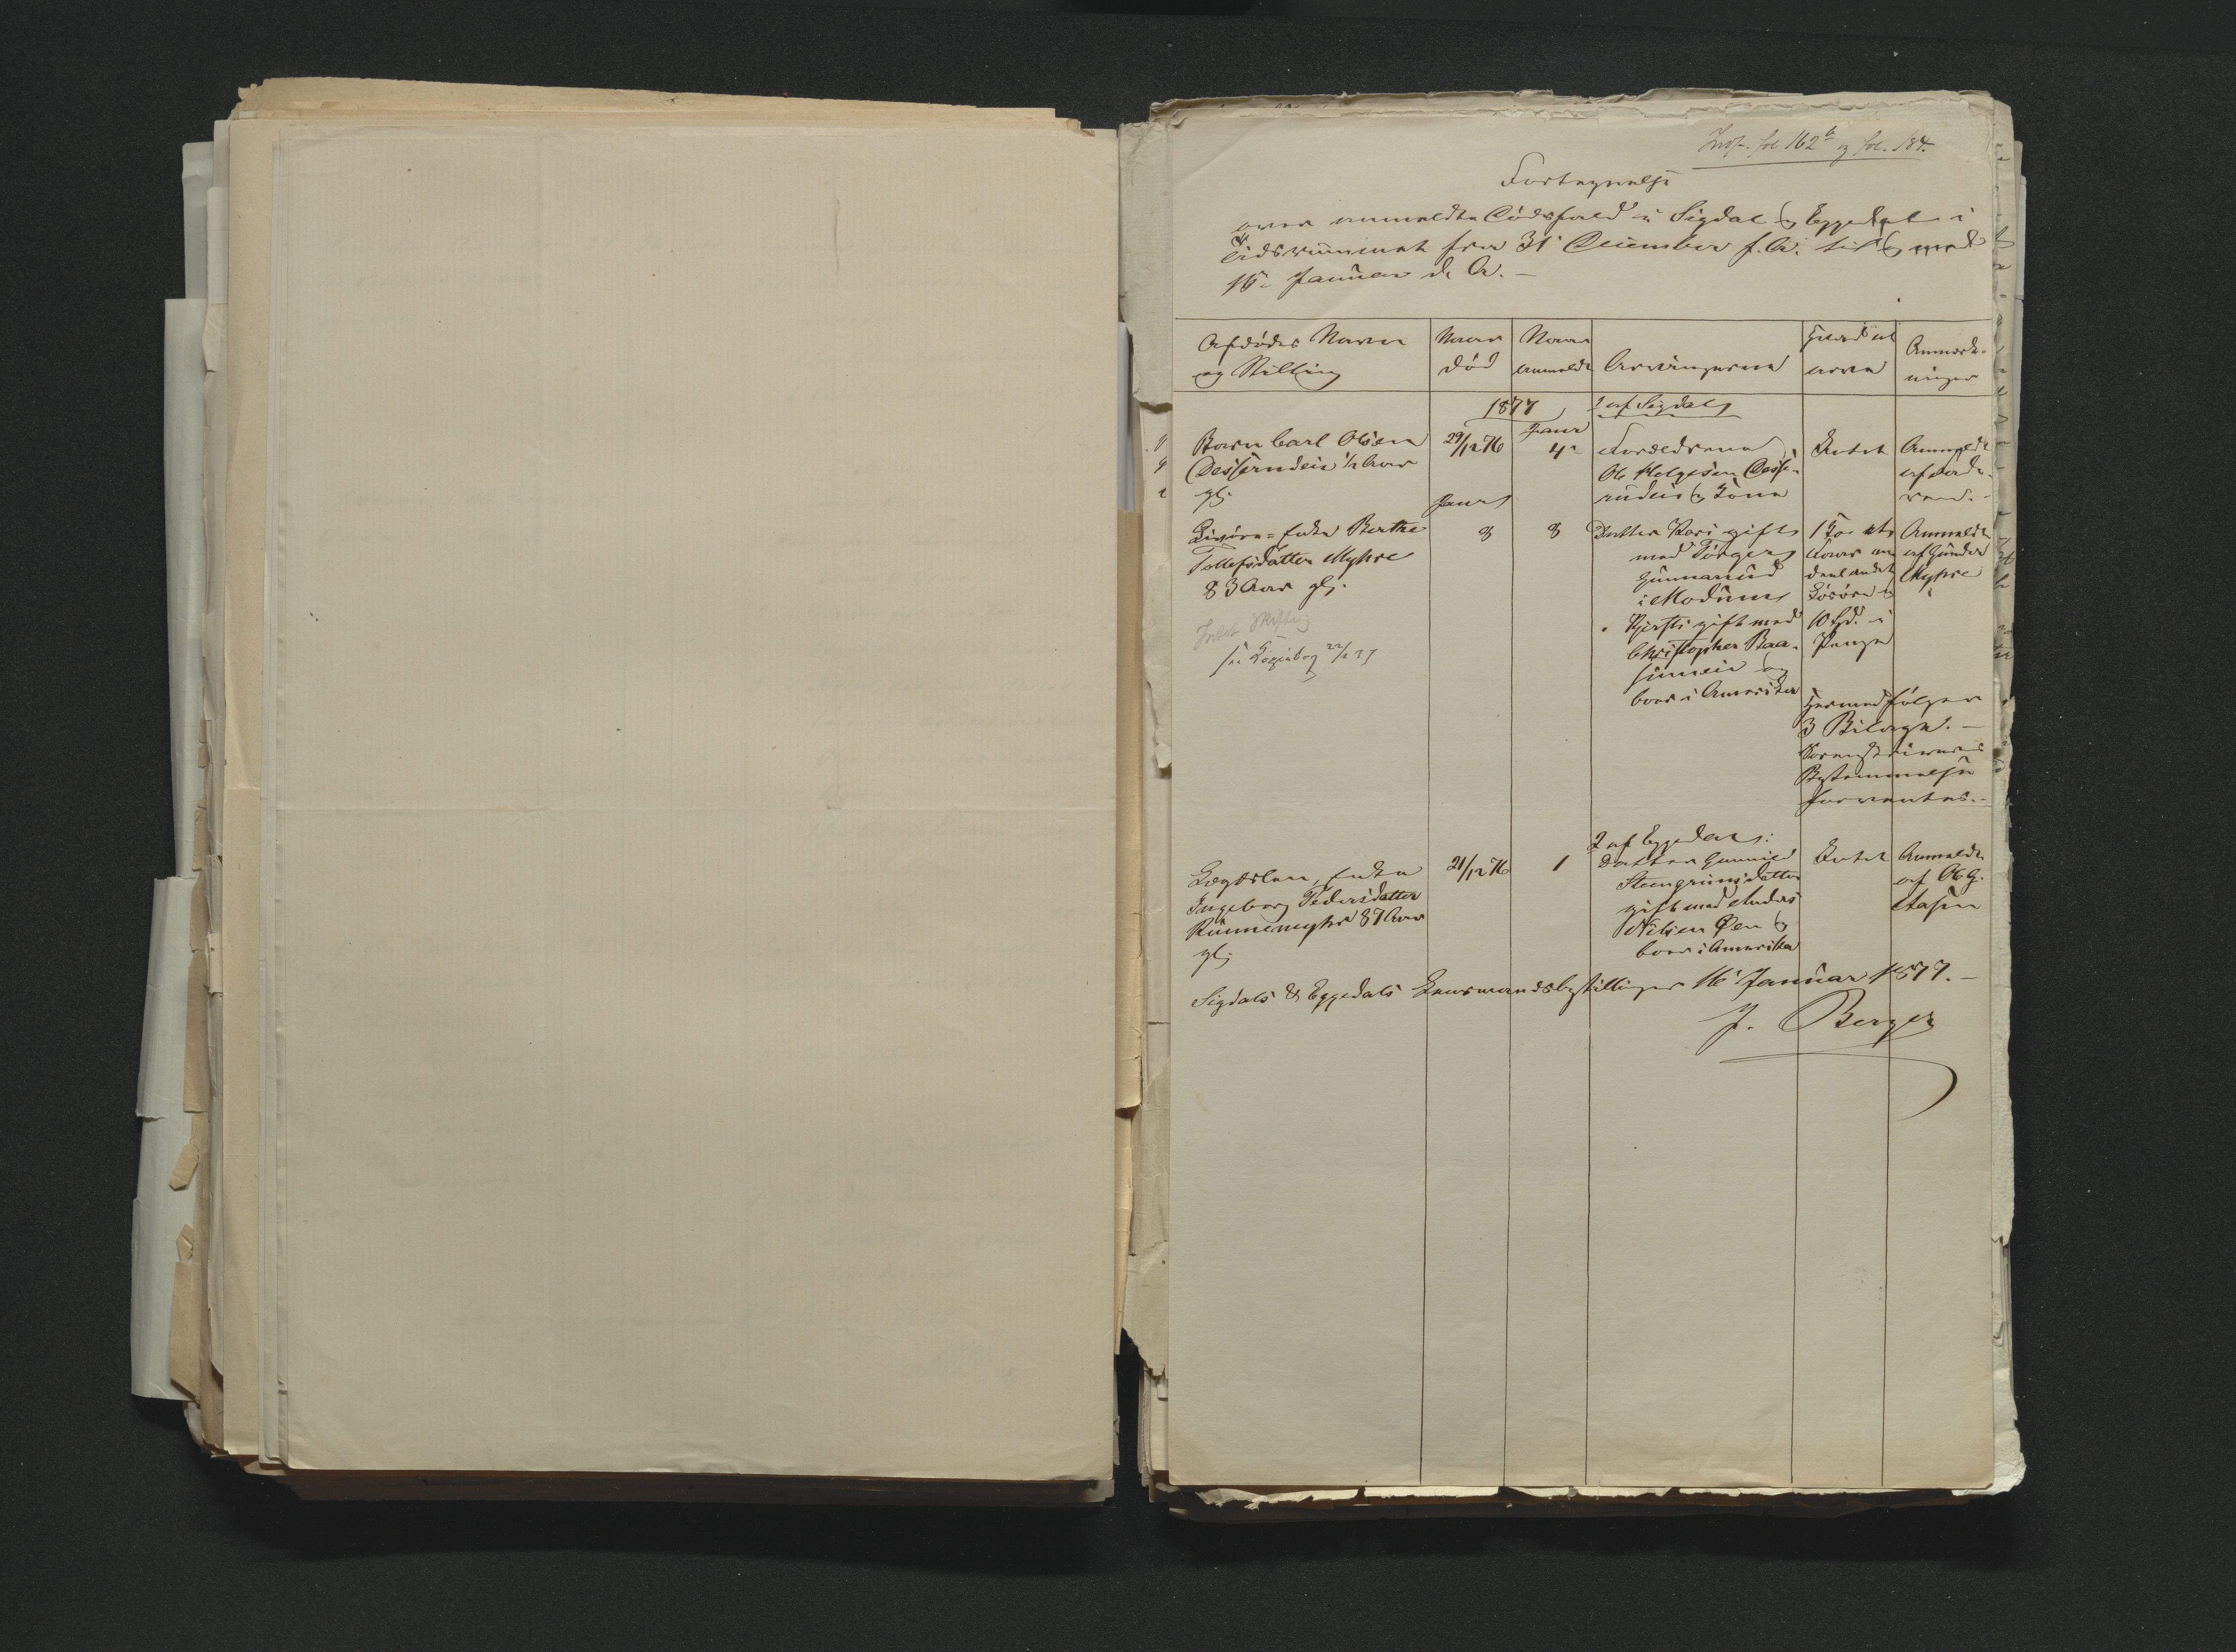 Indf. fol 162b og fol. 184.
Fortegnelse
over anmeldte Dødsfald i Sigdal & Eggedal i
Tidsrummet fra 31 December f. A. til & med
15 Januar d. A. —
Afdødes Navn og Stilling
Naar død
Naar anmeldt
Arvingerne
Hvad at arve
Anmærk-
ninger
1877
I af Sigdal
Barn Carl Olsen
Desserudeie ½ Aar
gl.
29/12 76
Janr
4
Forældrene
Ole Helgesen Desse-
rudeie & Kone
Intet
Anmeldt
af Fade-
ren.
Enke Berthe
Tollefsdatter Myhre
83 Aar gl.
Janr
8
8
Datter Kari gift
med Torger
Gunnarud
i Modum
Kjersti gift med
Christopher Baa-
seneie og
boer i Amerika
1 Ko et
Faar en
deel andet
Løsøre &
10 Spd. i
Penge
Anmeldt
af Gunder
Myhre
Intet Skifte
22/1 77
Hermed følger
3 Bilage. —
Sorenskriverens
Bestemmelse
forventes. —
2 af Eggedal:
Lægdslem, Enke
Ingeborg Pedersdatter
Rünnemyhr 87 Aar
gl.
21/12 76
1
Datter Gunnild
Steengrimsdatter
gift med Anders
Nilsen Øen &
boer i Amerika
Intet
Anmeldt
af Ole G.
Aasen
Sigdals & Eggedals Lensmandsbestillinger 16 Januar 1877. —
J. Berger